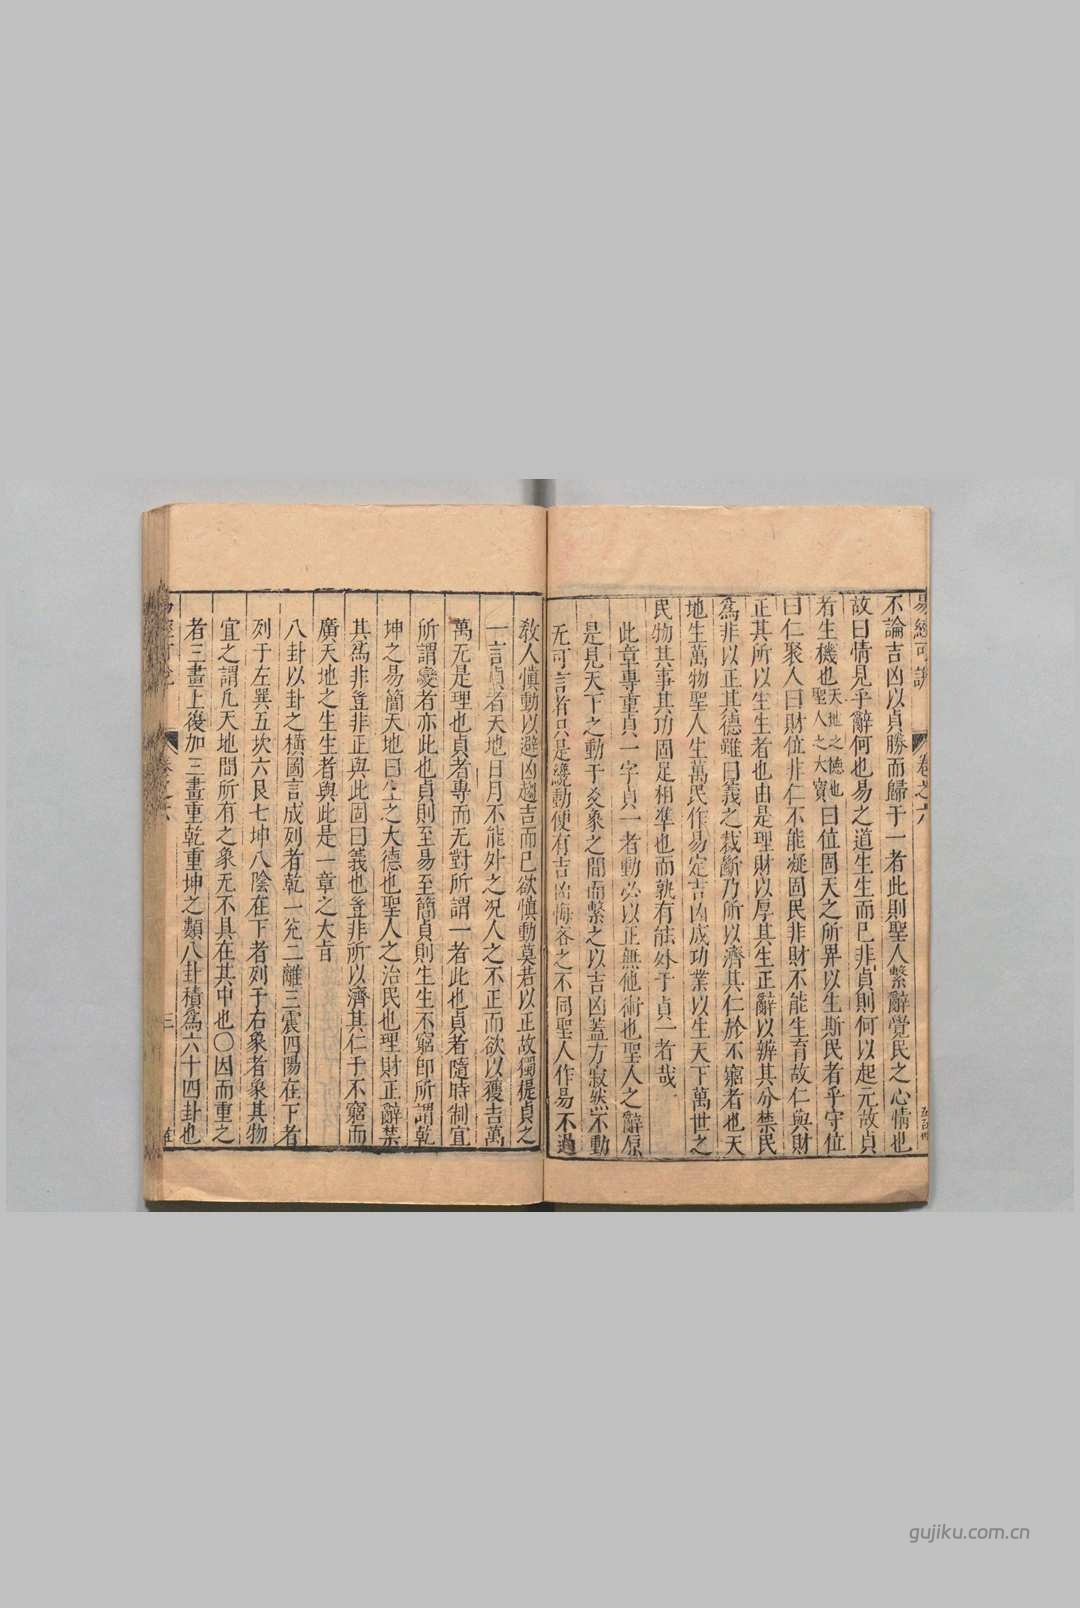 易經可說
卷之六
不論吉凶以貞勝而歸于一者此則聖人繫辭覺民之心情也
故曰情見乎辭何也易之道生生而已非貞則何以起元故貞
者生機也天地之德也聖人之大寳曰位固天之所畀以生斯民者乎守位
曰仁聚人曰財位非仁不能凝固民非財不能生育故仁與財
正其所以生生者也由是理財以厚其生正辭以辨其分禁民
爲非以正其德雖曰義之裁斷乃所以濟其仁於不窮者也天
地生萬物聖人生萬民作易定吉凶成功業以生天下萬世之
民物其事其功固足相準也而孰有能外于貞一者哉
此章專重貞一字貞一者動必以正無他術也聖人之辭原
是見天下之動于爻象之間而繫之以吉凶蓋方寂然不動
无可言者只是纔動便有吉凶悔吝之不同聖人作易不過
教人慎動以避凶趨吉而已欲慎動莫若以正故獨提貞之
一言貞者天地日月不能外之况人之不正而欲以獲吉萬
萬无是理也貞者專而无對所謂一者此也貞者隨時制宜
所謂變者亦此也貞則至易至簡貞則生生不窮即所謂乾
坤之易簡天地曰生之大德也聖人之治民也理財正辭禁
其爲非豈非正與此固曰義也豈非所以濟其仁于不窮而
廣天地之生生者與此是一章之大旨
八卦以卦之橫圖言成列者乾一兊二離三震四陽在下者
列于左巽五坎六艮七坤八陰在下者列于右象者象其物
宜之謂凡天地間所有之象无不具在其中也〇因而重之
者三畫上復加三畫重乾重坤之類八卦積爲六十四卦也
易經可說
卷之六
三